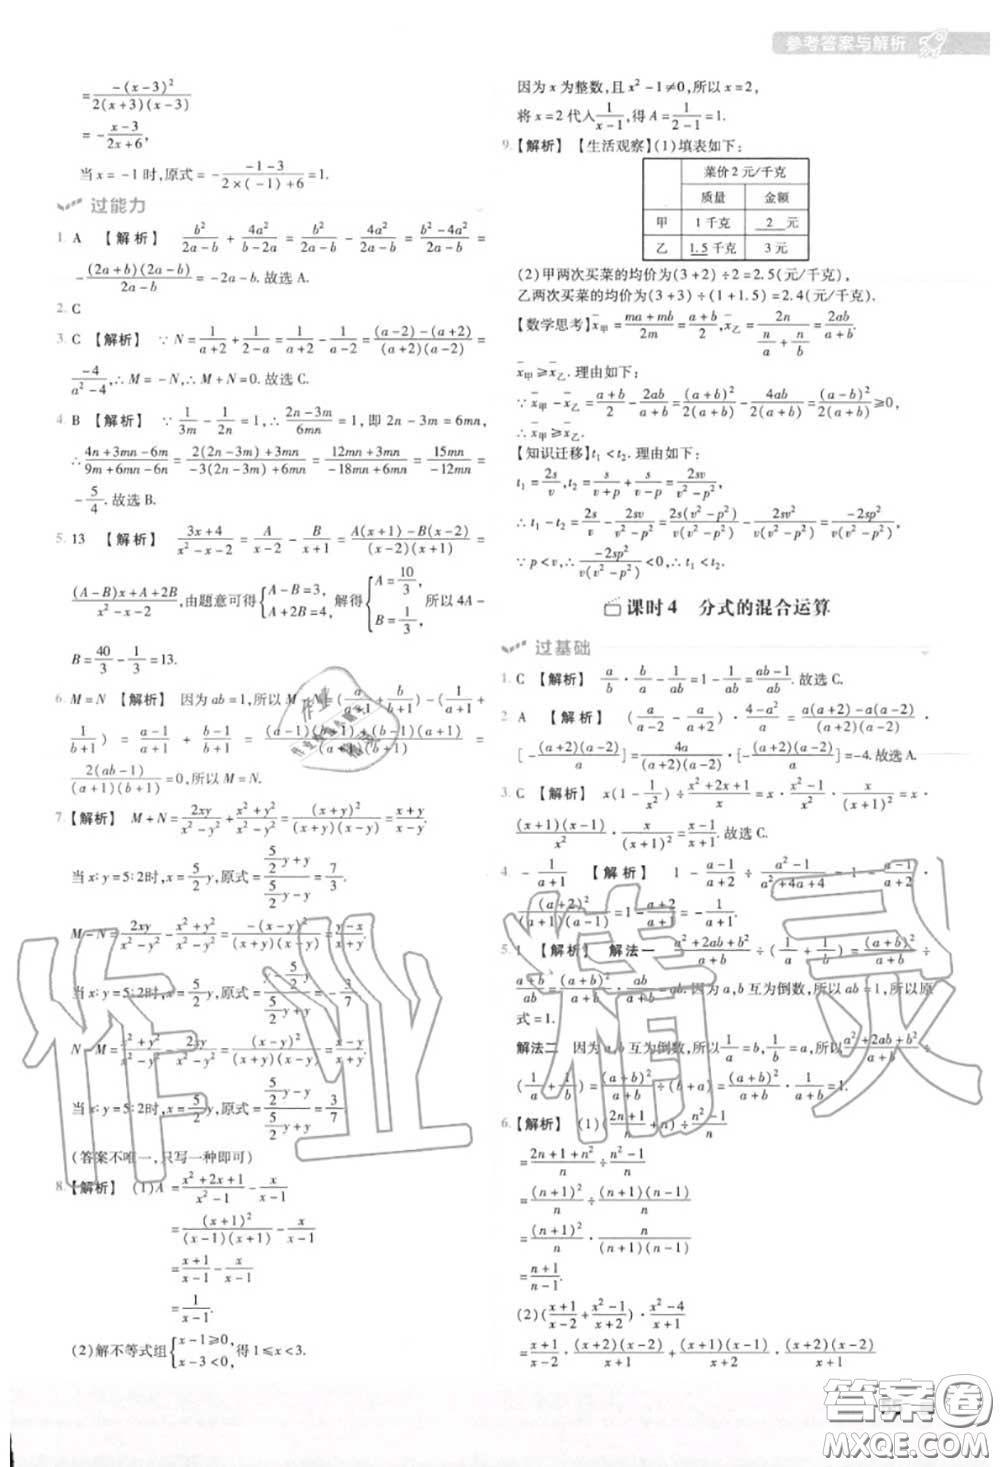 参考答案与解析
= -(x-3)²/[2(x+3)(x-3)]
= -(x-3)/(2x+6),
当 x = -1 时,原式 = -(-1-3)/[2×(-1)+6] = 1.
过能力
1. A 【解析】 b²/(2a-b) + 4a²/(b-2a) = b²/(2a-b) - 4a²/(2a-b) = (b²-4a²)/(2a-b) =
-(2a+b)(2a-b)/(2a-b) = -2a-b. 故选 A.
2. C
3. C 【解析】 ∵ N = 1/(a+2) + 1/(2-a) = 1/(a+2) - 1/(a-2) = [(a-2)-(a+2)]/[(a+2)(a-2)] =
-4/(a²-4), ∴ M = -N, ∴ M+N = 0. 故选 C.
4. B 【解析】 ∵ 1/(3m) - 1/(2n) = 1, ∴ (2n-3m)/(6mn) = 1, 即 2n-3m = 6mn,
∴ (4n+3mn-6m)/(9m+6mn-6n) = [2(2n-3m)+3mn]/[-3(2n-3m)+6mn] = (12mn+3mn)/(-18mn+6mn) = 15mn/(-12mn) =
-5/4. 故选 B.
5. 13 【解析】 (3x+4)/(x²-x-2) = A/(x-2) - B/(x+1) = [A(x+1)-B(x-2)]/[(x-2)(x+1)] =
[(A-B)x+A+2B]/(x²-x-2), 由题意可得 {A-B=3, A+2B=4, 解得 {A=10/3, B=1/3, 所以 4A-
B = 40/3 - 1/3 = 13.
6. M=N 【解析】 因为 ab=1, 所以 M-N = (a/(a+1) + b/(b+1)) - (1/(a+1) +
1/(b+1)) = (a-1)/(a+1) + (b-1)/(b+1) = [(a-1)(b+1)+(b-1)(a+1)]/[(a+1)(b+1)] =
2(ab-1)/[(a+1)(b+1)] = 0, 所以 M=N.
7. 【解析】 M+N = 2xy/(x²-y²) + (x²+y²)/(x²-y²) = (x+y)²/[(x+y)(x-y)] = (x+y)/(x-y).
当 x:y=5:2时, x = 5/2 y, 原式 = (5/2 y+y)/(5/2 y-y) = 7/3.
M-N = 2xy/(x²-y²) - (x²+y²)/(x²-y²) = -(x-y)²/[(x+y)(x-y)] = -(x-y)/(x+y).
当 x:y=5:2时, x = 5/2 y, 原式 = -(5/2 y-y)/(5/2 y+y) = -3/7.
N-M = (x²+y²)/(x²-y²) - 2xy/(x²-y²) = (x-y)²/[(x+y)(x-y)] = (x-y)/(x+y).
当 x:y=5:2时, x = 5/2 y, 原式 = (5/2 y-y)/(5/2 y+y) = 3/7
(答案不唯一,只写一种即可)
8. 【解析】 (1)A = (x²+2x+1)/(x²-1) - x/(x-1)
= (x+1)²/[(x-1)(x+1)] - x/(x-1)
= (x+1)/(x-1) - x/(x-1)
= 1/(x-1).
(2)解不等式组 {x-1≥0, x-3<0, 得 1≤x<3.
因为 x 为整数,且 x²-1≠0,所以 x=2,
将 x=2 代入 1/(x-1), 得 A = 1/(2-1) = 1.
9. 【解析】 【生活观察】(1)填表如下:
菜价 2 元/千克
质量 金额
甲 1 千克 2 元
乙 1.5 千克 3 元
(2)甲两次买菜的均价为(3+2)÷2=2.5(元/千克),
乙两次买菜的均价为(3+3)÷(1+1.5)=2.4(元/千克).
【数学思考】x̄甲 = (ma+mb)/(2m) = (a+b)/2, x̄乙 = 2n/(n/a + n/b) = 2ab/(a+b).
x̄甲≥x̄乙. 理由如下:
∵ x̄甲-x̄乙 = (a+b)/2 - 2ab/(a+b) = (a+b)²/[2(a+b)] - 4ab/[2(a+b)] = (a-b)²/[2(a+b)] ≥0,
∴ x̄甲≥x̄乙.
【知识迁移】t₁<t₂. 理由如下:
t₁ = 2s/v, t₂ = s/(v+p) + s/(v-p) = 2sv/(v²-p²),
∴ t₁-t₂ = 2s/v - 2sv/(v²-p²) = 2s(v²-p²)/[v(v²-p²)] - 2sv²/[v(v²-p²)] = -2sp²/[v(v²-p²)].
∵ p<v, ∴ -2sp²/[v(v²-p²)] <0, ∴ t₁<t₂.
课时4 分式的混合运算
过基础
1. C 【解析】 a/b · b/a... 
2. A 【解析】 (a/(a-2) - a/(a+2)) · (4-a²)/a = [a(a+2)-a(a-2)]/[(a+2)(a-2)] ·
[-(a+2)(a-2)/a] = 4a/[(a+2)(a-2)] · [-(a+2)(a-2)/a] = -4. 故选 A.
3. C 【解析】 x(1-1/x²) ÷ (x+1)²/x = x · (x²-1)/x² · x/(x+1)² = x ·
(x+1)(x-1)/x² · x/(x+1)² = (x-1)/(x+1). 故选 C.
4. -1/(a+1) 【解析】 1 - (a-1)/(a+2) ÷ (a²-1)/(a²+4a+4) = 1 - (a-1)/(a+2) ·
(a+2)²/[(a+1)(a-1)] = 1 - (a+2)/(a+1) = -1/(a+1).
5. 1 【解析】 解法一 (a²+2ab+b²)/(a+b) ÷ (1/a + 1/b) = (a+b)²/(a+b) ÷
(a+b)/ab = (a+b)²/(a+b) · ab/(a+b) = ab. 因为 a,b 互为倒数,所以 ab=1,所以原
式=1.
解法二 因为 a,b 互为倒数,所以 1/a = b, 1/b = a, 所以 (a²+2ab+b²)/(a+b) ÷
(1/a + 1/b) = (a+b)²/(a+b) ÷ (b+a) = (a+b)²/(a+b) · 1/(a+b) = 1.
6. 【解析】 (1)((2n+1)/n + n) ÷ (n²-1)/n
= (2n+1+n²)/n ÷ (n²-1)/n
= (n+1)²/n ÷ (n+1)(n-1)/n
= (n+1)²/n · n/[(n+1)(n-1)]
= (n+1)/(n-1).
(2)((x+1)/(x-2) + (x²-1)/(x+1)) · (x²-4)/(x+1)
= (x+1)/(x-2) · (x+2)(x-2)/(x+1) + (x+1)(x-1)/(x+1) · (x+2)(x-2)/(x+1)
作业精灵
答案圈
MXQE.COM